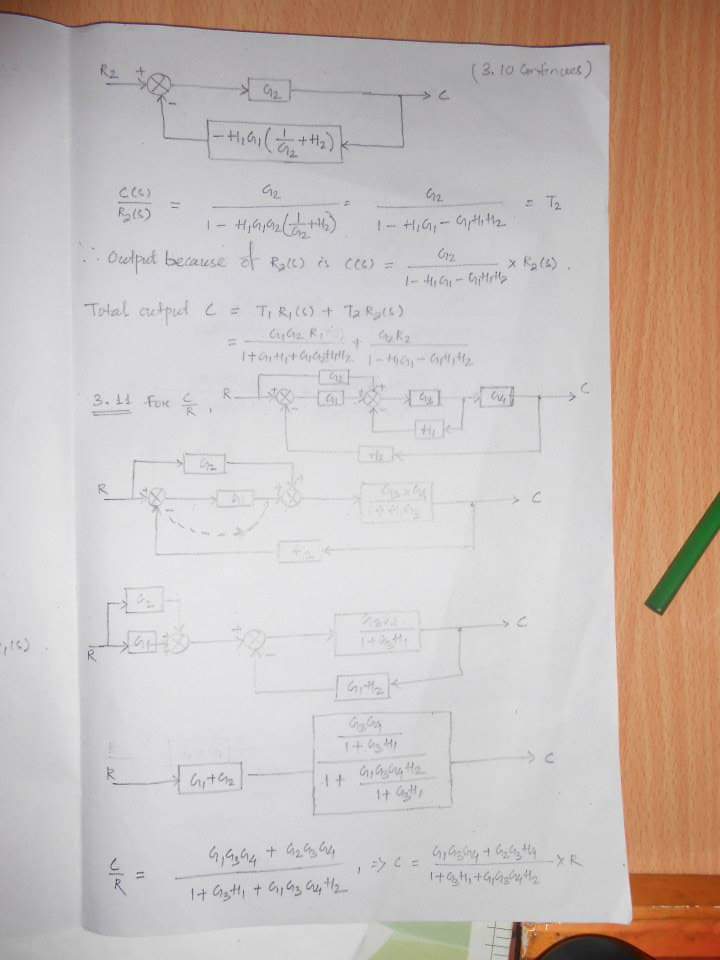 (3.10 Continues)
R2 + - G2 C
-H1G1(1/G2 + H2)
C(s)/R2(s) = G2/(1 - H1G1G2(1/G2 + H2)) = G2/(1 - H1G1 - G1H1H2) = T2
∴ Output because of R2(s) is C(s) = G2/(1 - H1G1 - G1H1H2) × R2(s).
Total output C = T1 R1(s) + T2 R2(s)
= G1G2 R1/(1 + G1H1 + G1G2H1H2) + G2R2/(1 - H1G1 - G1H1H2)
G2
3.11 For C/R, R + - G1 + + - G3 G4 C
H1
H2
G2
R + - G1 + + G3 × G4/1 + H1G3 C
H2
G2
R G1 + + + - 1 + G3H1 C
G1H2
R G1 + G2 (G3G4/(1 + G3H1))/(1 + G1G3G4H2/(1 + G3H1)) C
C/R = (G1G3G4 + G2G3G4)/(1 + G3H1 + G1G3G4H2), => C = (G1G3G4 + G2G3H4)/(1 + G3H1 + G1G3G4H2) × R
1(s).